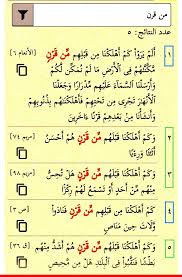 من قرن
عدد النتائج: ٥
١
أَلَمْ يَرَوْا كَمْ أَهْلَكْنَا مِن قَبْلِهِم مِّن قَرْنٍ [الأنعام ٦]
مَّكَّنَّاهُمْ فِي الْأَرْضِ مَا لَمْ نُمَكِّن لَّكُمْ
وَأَرْسَلْنَا السَّمَاءَ عَلَيْهِم مِّدْرَارًا وَجَعَلْنَا
الْأَنْهَارَ تَجْرِي مِن تَحْتِهِمْ فَأَهْلَكْنَاهُم بِذُنُوبِهِمْ
وَأَنشَأْنَا مِن بَعْدِهِمْ قَرْنًا آخَرِينَ
٢
وَكَمْ أَهْلَكْنَا قَبْلَهُم مِّن قَرْنٍ هُمْ أَحْسَنُ [مريم ٧٤]
أَثَاثًا وَرِئْيًا
٣
وَكَمْ أَهْلَكْنَا قَبْلَهُم مِّن قَرْنٍ هَلْ تُحِسُّ [مريم ٩٨]
مِنْهُم مِّنْ أَحَدٍ أَوْ تَسْمَعُ لَهُمْ رِكْزًا
٤
كَمْ أَهْلَكْنَا مِن قَبْلِهِم مِّن قَرْنٍ فَنَادَوا [ص ٣]
وَّلَاتَ حِينَ مَنَاصٍ
٥
وَكَمْ أَهْلَكْنَا قَبْلَهُم مِّن قَرْنٍ هُمْ أَشَدُّ مِنْهُم [ق ٣٦]
بَطْشًا فَنَقَّبُوا فِي الْبِلَادِ هَلْ مِن مَّحِيصٍ